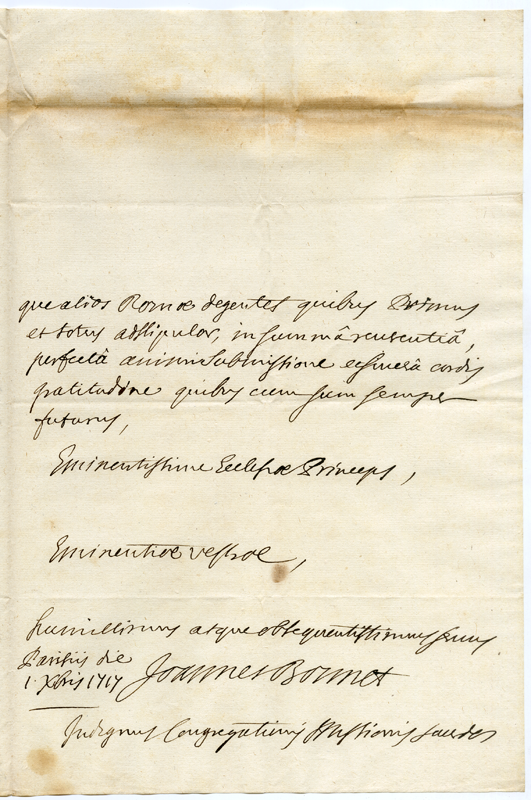 que alios Romæ degentes quibus Primus
et totus adstipulor, in summâ reverentiâ,
perfectâ animi submissione et sincerâ cordis
gratitudine quibus cum sum semper
futurus,
Eminentissime Ecclesiæ Princeps,
Eminentiæ vestræ,
humillimus atque obsequentissimus servus
Parisiis die
1. Xbris 1717 Joannes Bonnet
Indignus Congregationis Missionis sacerdos